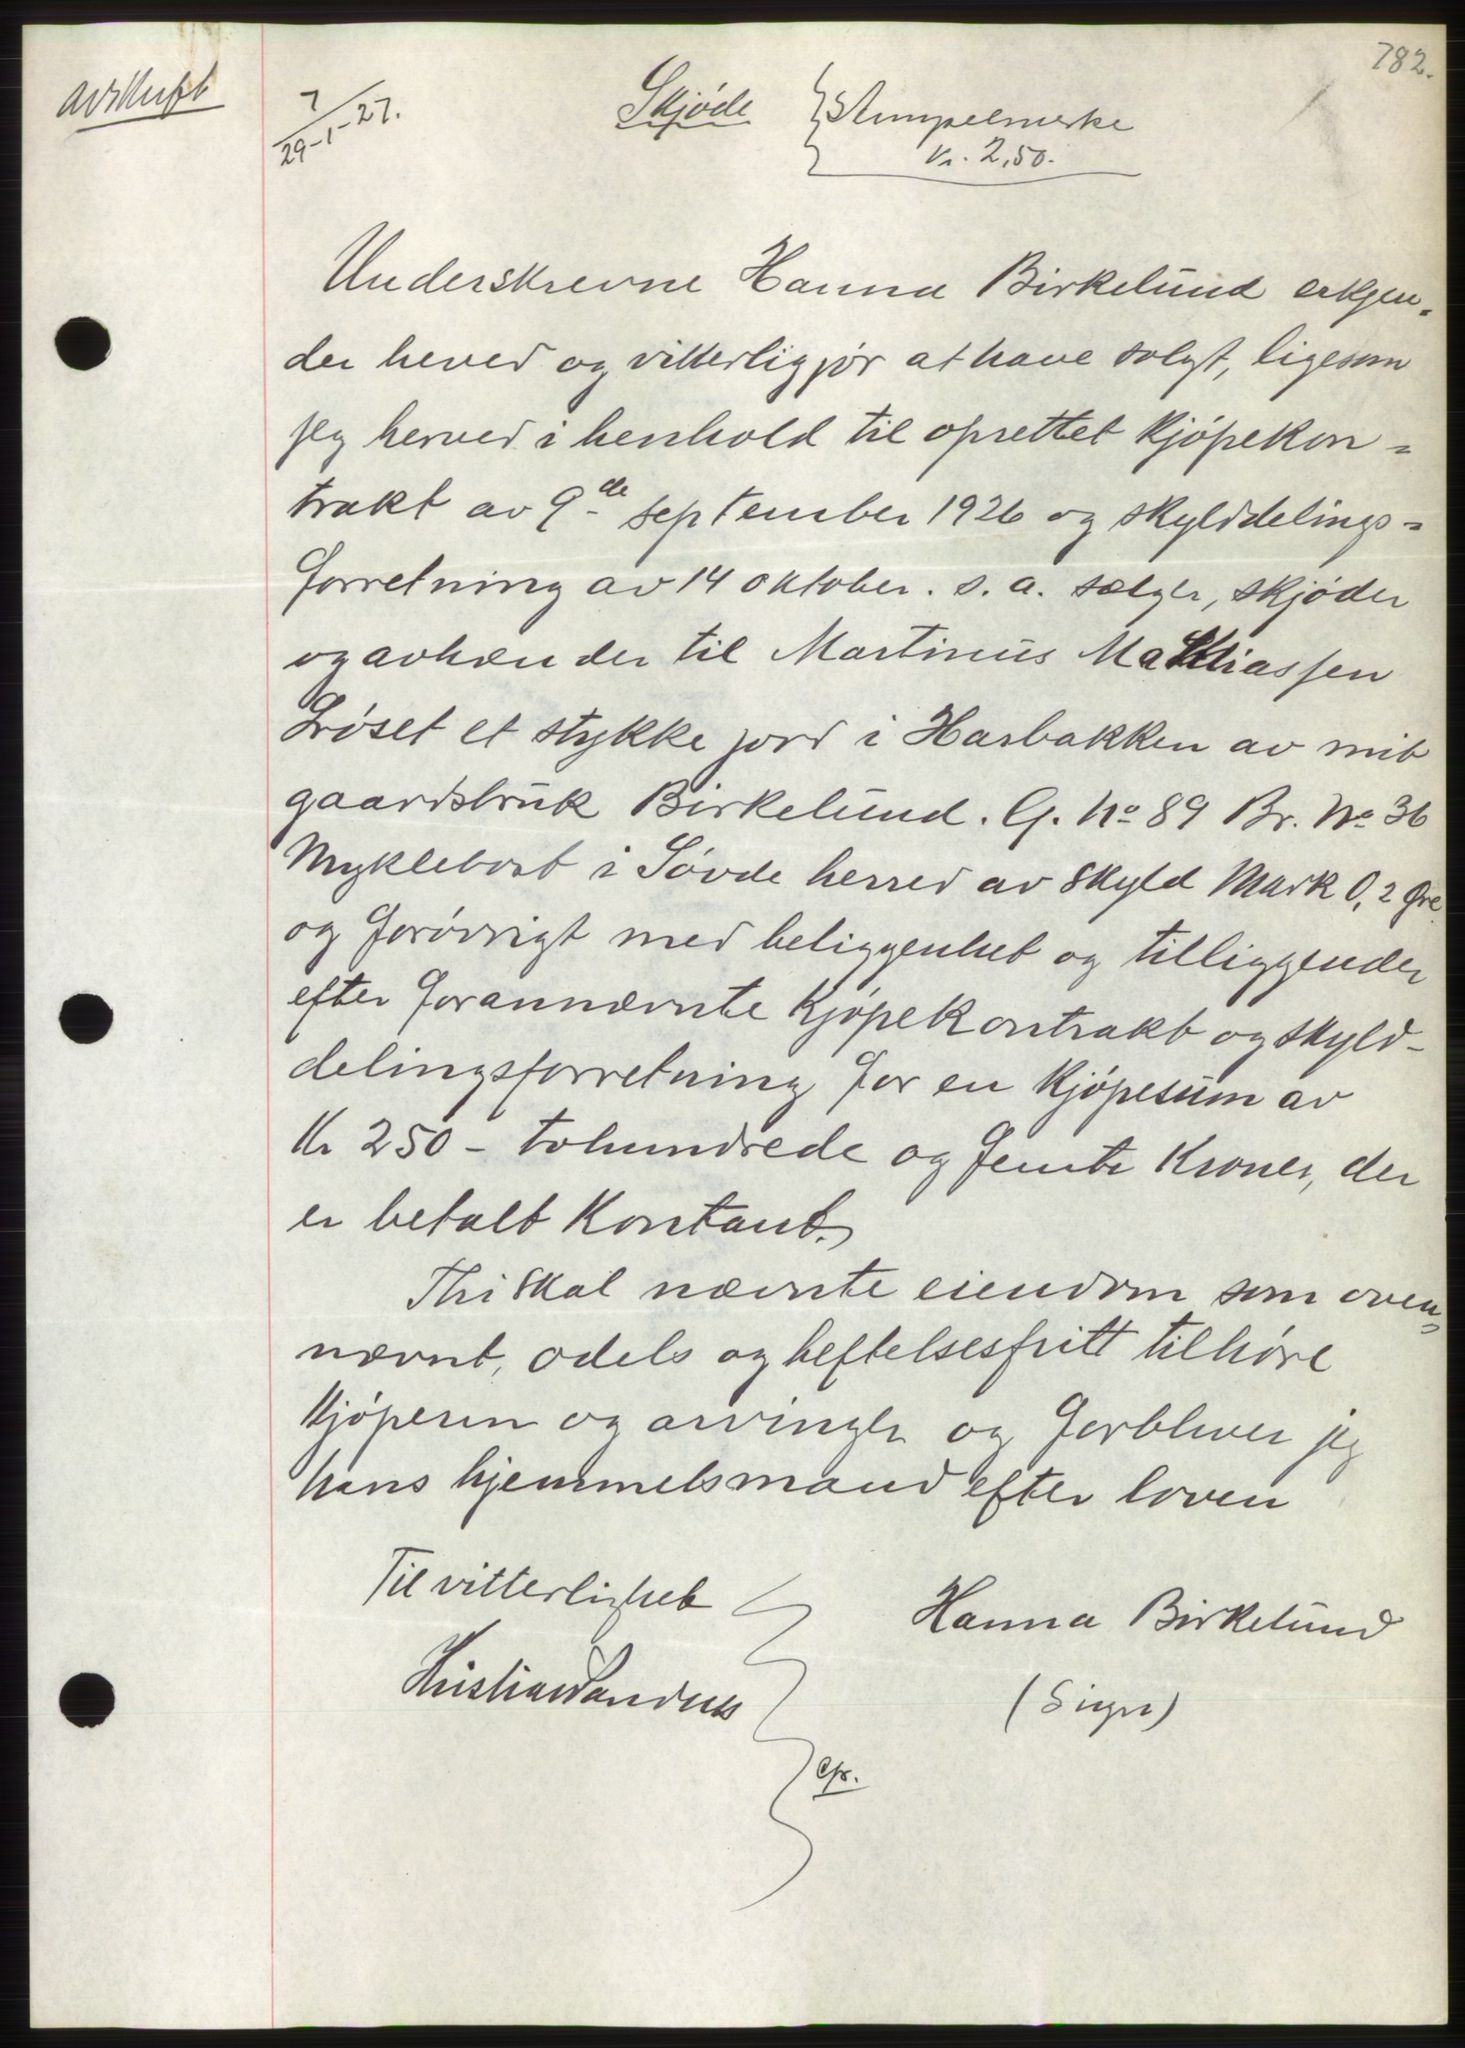 782.
avskrift
7/29-1-27.
Skjøde
Stempelmerke
kr. 2,50.
Underskrevne Hanna Birkelund erkjen-
der herved og vitterliggjør at have solgt, ligesom
jeg herved i henhold til oprettet kjøpekon=
trakt av 9de september 1926 og skylddelings=
forretning av 14 oktober. s. a. sælger, skjøder
og avhænder til Martinus Mathiassen
Grøset et stykke jord i Harbakken av mit
gaardsbruk Birkelund. G. No 89 Br. No 36
Myklebost i Søvde herred av skyld Mark 0,2 Øre
og forøvrigt med beliggenhet og tilliggender
efter forannævnte kjøpekontrakt og skyld-
delingsforretning for en kjøpesum av
Kr 250 - tohundrede og femti Kroner, der
er betalt kontant.
Thi skal nævnte eiendom som oven=
nævnt, odels og heftelsesfritt tilhøre
kjøperen og arvinger og forbliver jeg
hans hjemmelsmand efter loven
Til vitterlighet
Hanna Birkelund
Kristian Sandnes
(Sign)